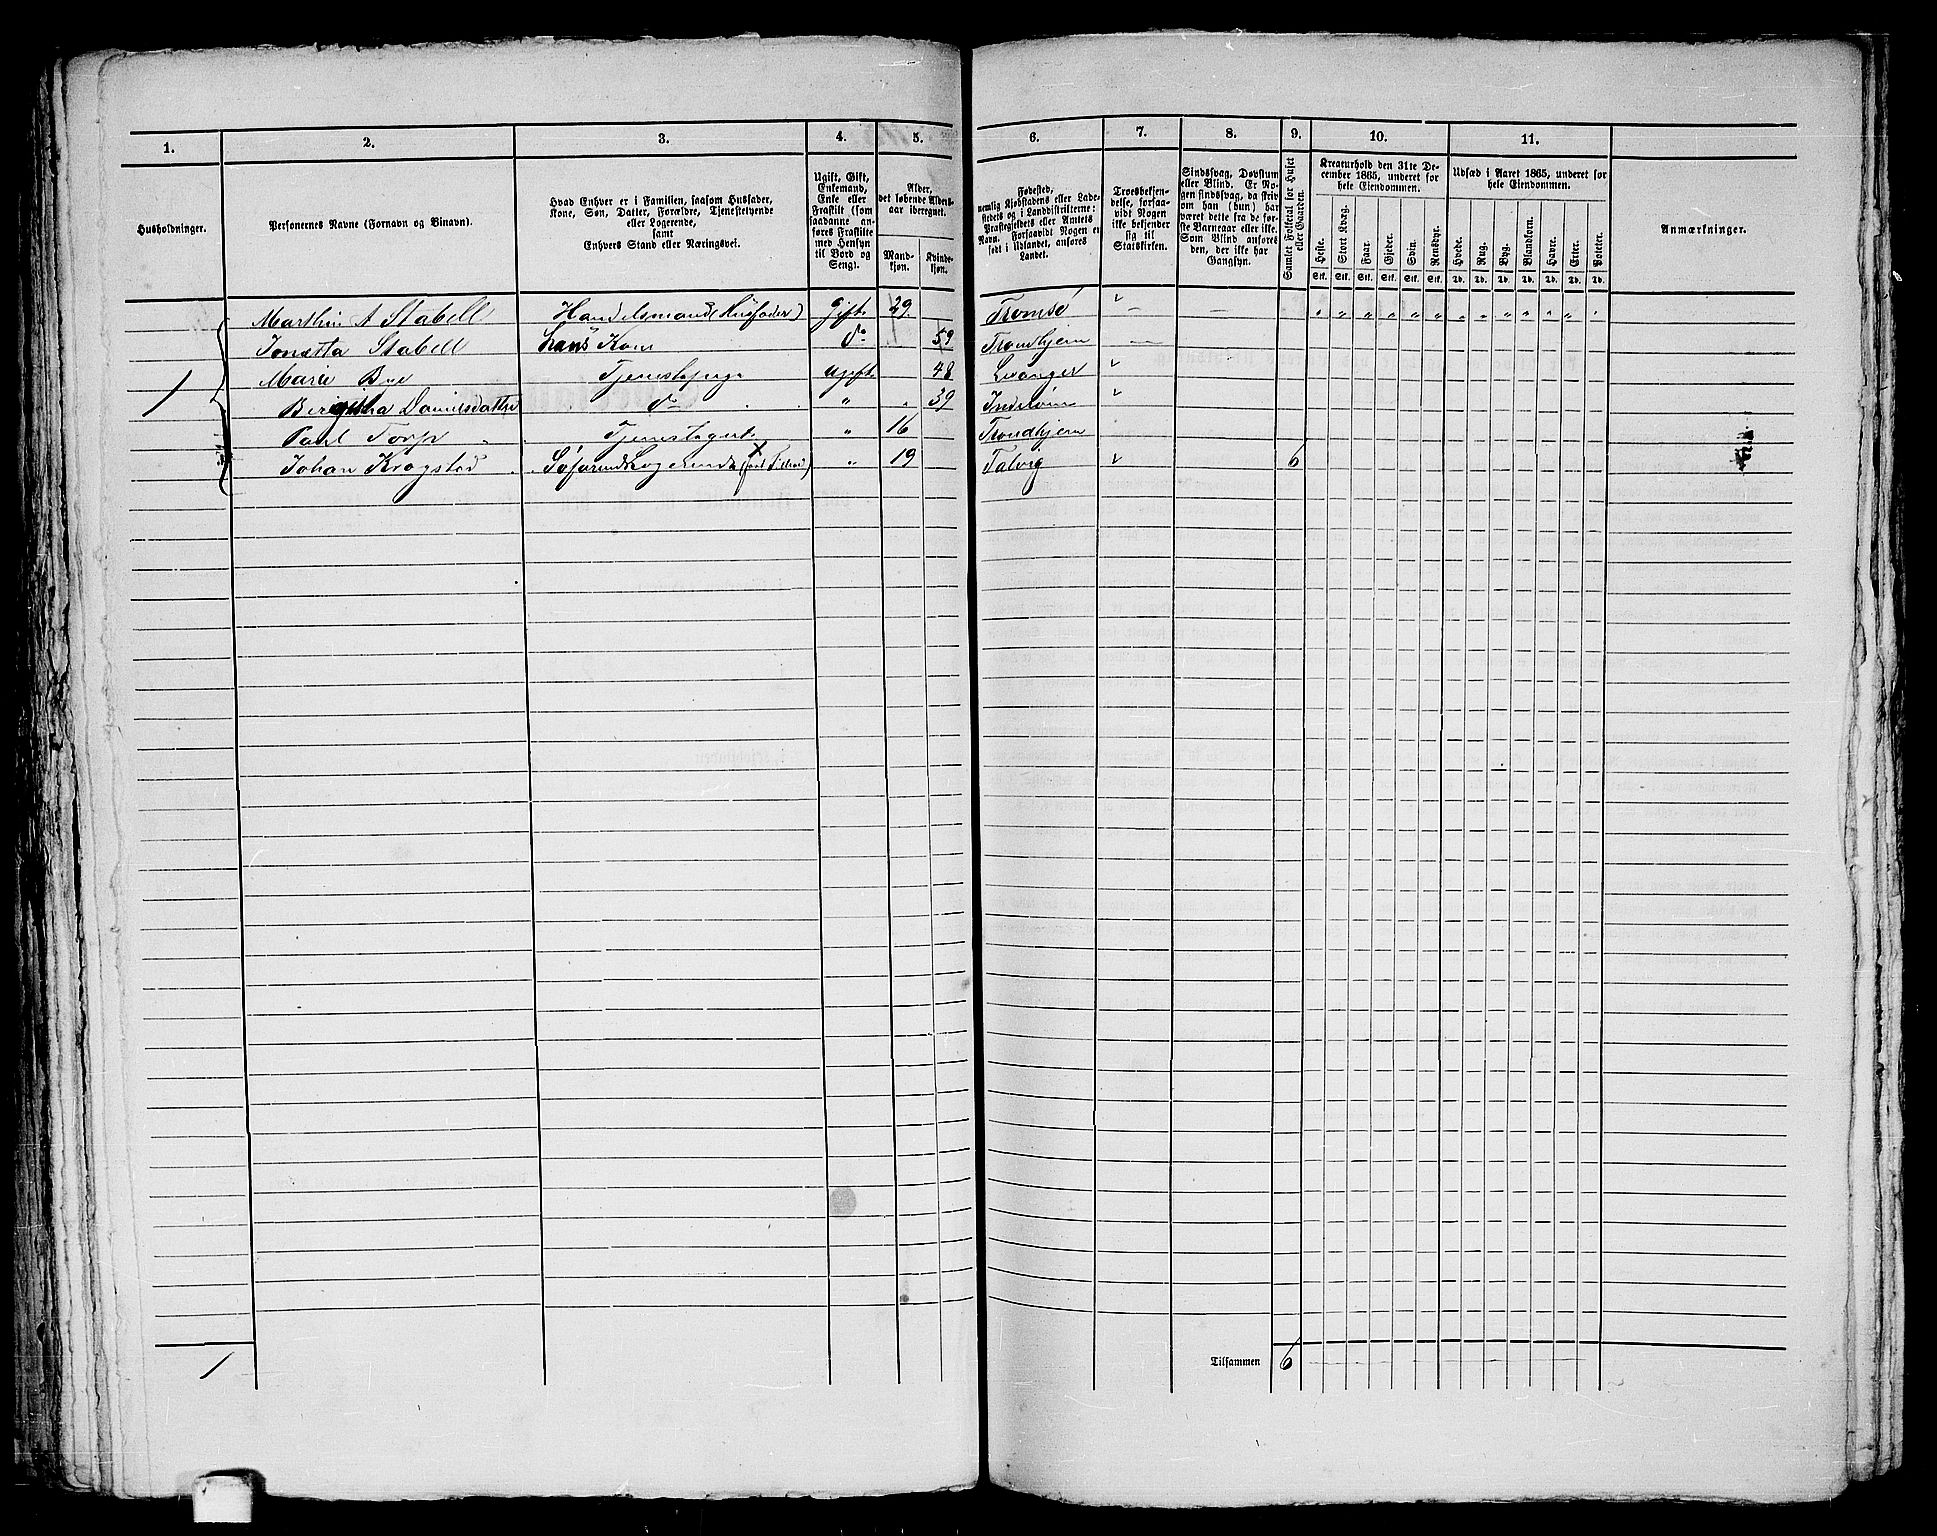 1. 2. 3. 4. 5. 6. 7. 8. 9. 10. 11.
Husholdninger.
Personernes Navne (Fornavn og Binavn).
Hvad Enhver er i Familien, saasom Husfader,
Kone, Søn, Datter, Forældre, Tjenestetyende
eller Logerende,
samt
Enhvers Stand eller Næringsvei.
Ugift, Gift,
Enkemand,
Enke eller
Fraskilt (som
saadanne an-
føres Fraskilte
med Hensyn
til Bord og
Seng).
Alder,
det løbende Alders-
aar iberegnet.
Mand-
kjøn.
Kvinde-
kjøn.
Fødested,
nemlig Kjøbstadens eller Lade-
stedets og i Landdistrikterne:
Præstegjeldets eller Amtets
Navn. Forsaavidt Nogen er
født i Udlandet, anføres
Landet.
Troesbekjen-
delse, forsaa-
vidt Nogen
ikke bekjender
sig til
Statskirken.
Sindssvag, Døvstum
eller Blind. Er No-
gen sindssvag, da skriv
om han (hun) har
været dette fra de før-
ste Barneaar eller ikke.
Som Blind anføres
den, der ikke har
Gangsyn.
Samlet Folketal for Huset
eller Gaarden.
Kreaturhold den 31te De-
cember 1865, underet for
hele Eiendommen.
Heste. Stort Kvæg. Faar. Gjeder. Svin. Rensdyr.
Stk. Stk. Stk. Stk. Stk. Stk.
Udsæd i Aaret 1865, underet for
hele Eiendommen.
Hvede. Rug. Byg. Blandkorn. Havre. Erter. Poteter.
Td. Td. Td. Td. Td. Td. Td.
Anmærkninger.
1
Marthin A Stabell Handelsmand (Husfader) Gift 29 Tromsø
Stabell Hans Kone do 59 Trondhjem
Marie Tjenestepige Ugift 48 Levanger
Danielsdatter do " 39 Inderøen
Paul Torp " 16 Trondhjem
Johan Krogstad Logerende " 19 Talvig 6
1
Tilsammen 6